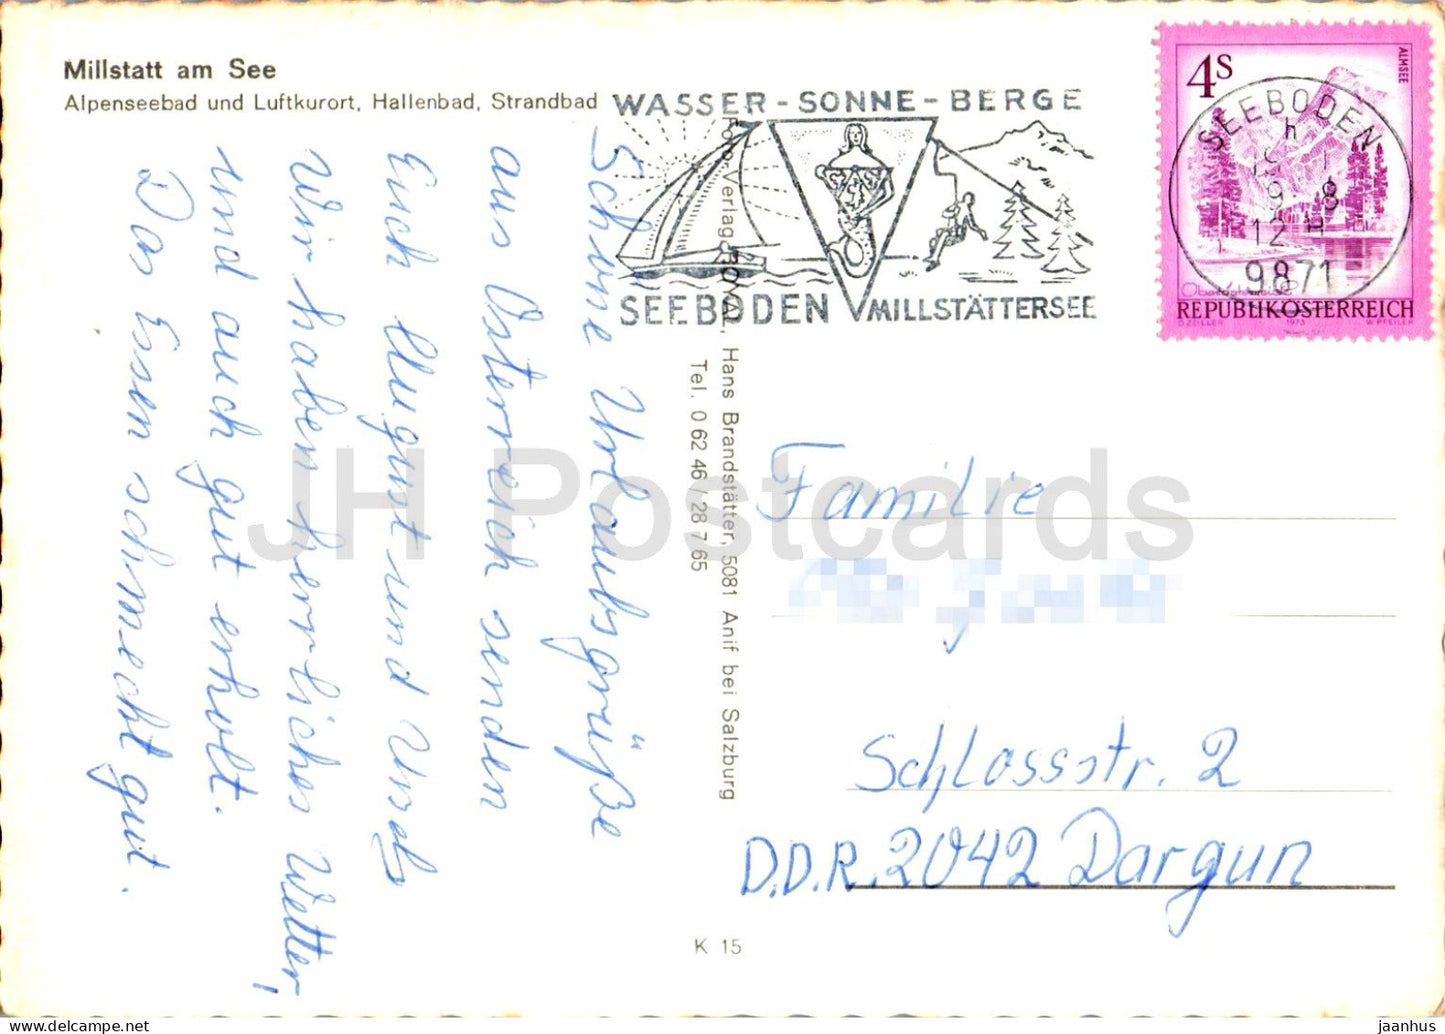 Millstatt am See
Alpenseebad und Luftkurort, Hallenbad, Strandbad
WASSER - SONNE - BERGE
SEEBODEN MILLSTÄTTERSEE
4S
ALMSEE
REPUBLIK ÖSTERREICH
1973
SEEBODEN
9871
Schöne Urlaubsgrüße
aus Österreich senden
Euch August und
Wir haben herrliches Wetter,
und auch gut erholt.
Das Essen schmeckt gut.
Hans Brandstätter, 5081 Anif bei Salzburg
Tel. 0 62 46 / 28 7 65
Familie
Schlossstr. 2
D.D.R. 2042 Dargun
K 15
JH Postcards
jaanhus
www.delcampe.net